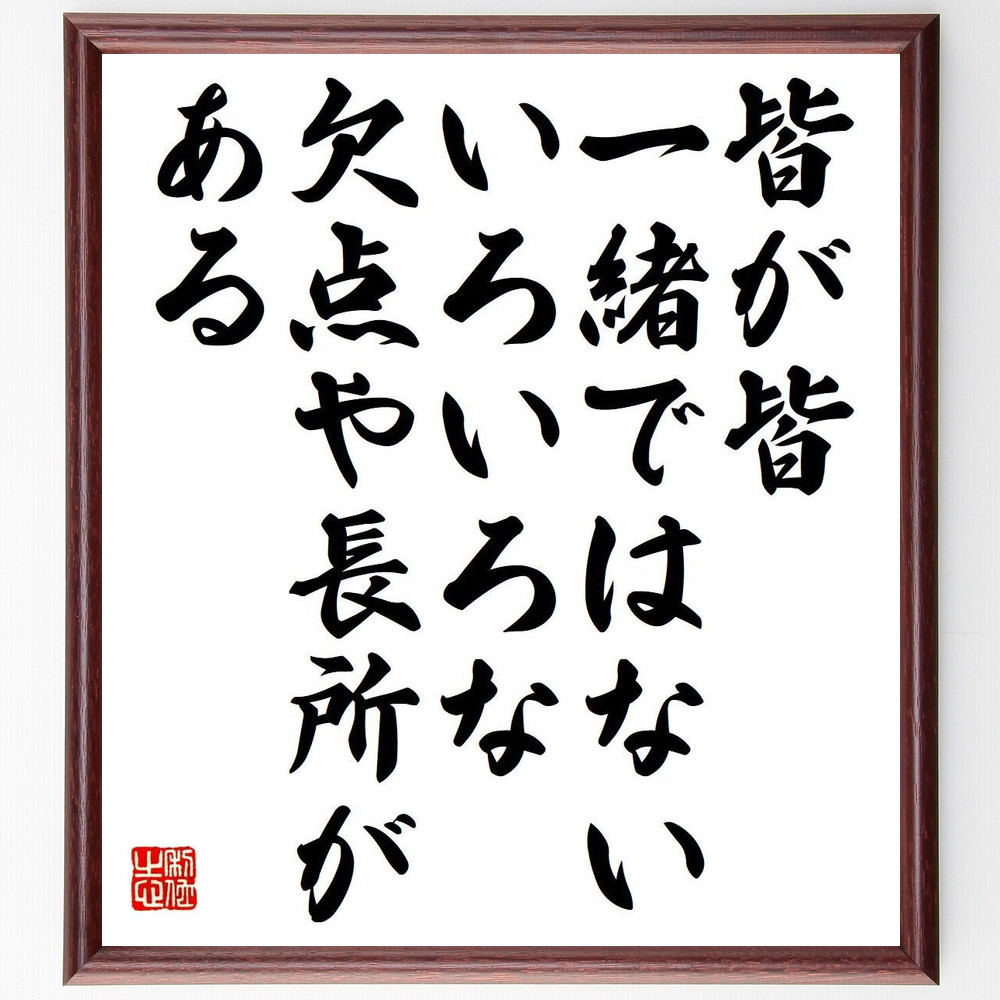 皆が皆
一緒ではない
いろいろな
欠点や長所が
ある